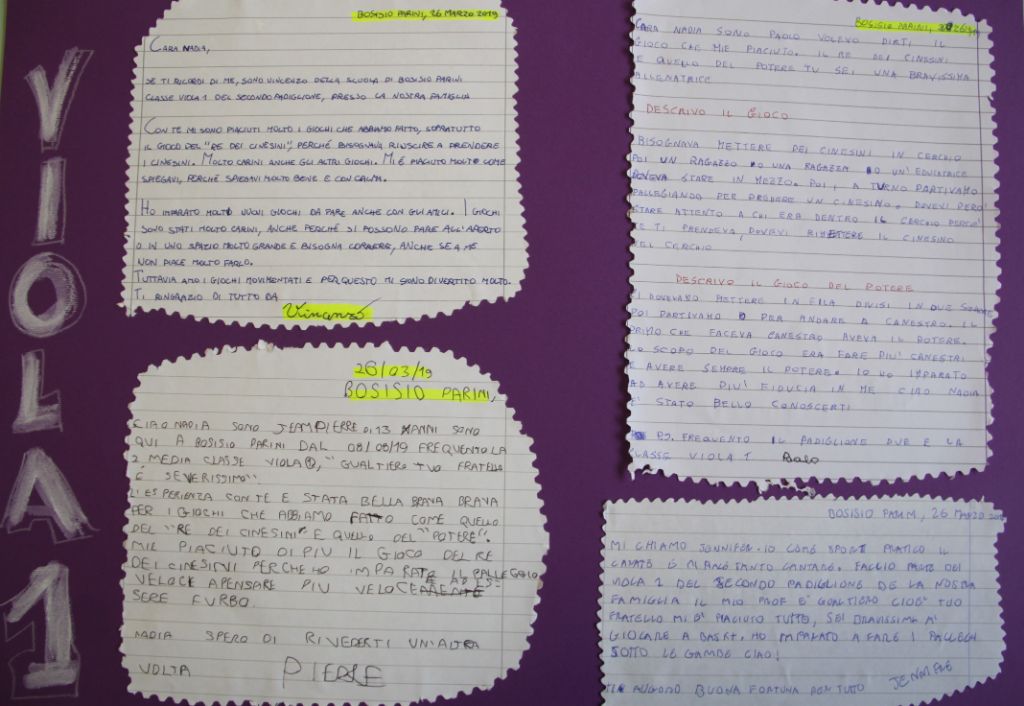 VIOLA 1
BOSISIO PARINI, 26 MARZO 2019
CARA NADIA,
SE TI RICORDI DI ME, SONO VINCENZO DELLA SCUOLA DI BOSISIO PARINI
CLASSE VIOLA 1 DEL SECONDO PADIGLIONE, PRESSO LA NOSTRA FAMIGLIA
CON TE MI SONO PIACIUTI MOLTO I GIOCHI CHE ABBIAMO FATTO, SOPRATUTTO
IL GIOCO DEL "RE DEI CINESINI", PERCHÉ BISOGNAVA RIUSCIRE A PRENDERE
I CINESINI. MOLTO CARINI ANCHE GLI ALTRI GIOCHI. MI È PIACIUTO MOLTO COME
SPIEGAVI, PERCHÉ SPIEGAVI MOLTO BENE E CON CALMA.
HO IMPARATO MOLTI NUOVI GIOCHI DA FARE ANCHE CON GLI ALTRI. I GIOCHI
SONO STATI MOLTO CARINI, ANCHE PERCHÉ SI POSSONO FARE ALL'APERTO
O IN UNO SPAZIO MOLTO GRANDE E BISOGNA CORRERE, ANCHE SE A ME
NON PIACE MOLTO FARLO.
TUTTAVIA AMO I GIOCHI MOVIMENTATI E PER QUESTO MI SONO DIVERTITO MOLTO.
TI RINGRAZIO DI TUTTO DA
26/03/19
BOSISIO PARINI,
CIAO NADIA SONO JEAMPIERRE DI 13 ANNI SONO
QUI A BOSISIO PARINI DAL 08/08/19 FREQUENTO LA
2 MEDIA CLASSE VIOLA 1, "GUALTIERO TUO FRATELLO
É SEVERISSIMO"
L'ESPERIENZA CON TE E STATA BELLA BRAVA BRAVA
PER I GIOCHI CHE ABBIAMO FATTO COME QUELLO
DEL "RE DEI CINESINI" E QUELLO DEL "POTERE".
MIE PIACIUTO DI PIU IL GIOCO DEL RE
DEI CINESINI PERCHE HO IMPARATO AL PALLEGGIO
VELOCE A PENSARE PIU VELOCEMENTE AD ES-
SERE FURBO.
NADIA SPERO DI RIVEDERTI UN'ALTRA
VOLTA PIERRE
BOSISIO PARINI,
CARA NADIA SONO PAOLO VOLEVO DIRTI IL
GIOCO CHE MIE PIACIUTO. IL RE DEI CINESINI
E QUELLO DEL POTERE TU SEI UNA BRAVISSIMA
ALLENATRICE
DESCRIVO IL GIOCO
BISOGNAVA METTERE DEI CINESINI IN CERCHIO
POI UN RAGAZZO O UNA RAGAZZA O UN'EDUCATRICE
DOVEVA STARE IN MEZZO. POI, A TURNO PARTIVAMO
PALLEGGIANDO PER PRENDERE UN CINESINO. DOVEVI PERO'
STARE ATTENTO A CHI ERA DENTRO IL CERCHIO PERCE'
SE TI PRENDEVA, DOVEVI RIMETTERE IL CINESINO
NEL CERCHIO
DESCRIVO IL GIOCO DEL POTERE
CI DOVEVAMO METTERE IN FILA DIVISI IN DUE SQUADRE
POI PARTIVAMO PER ANDARE A CANESTRO. IL
PRIMO CHE FACEVA CANESTRO AVEVA IL POTERE.
LO SCOPO DEL GIOCO ERA FARE PIU' CANESTRI
E AVERE SEMPRE IL POTERE. IO HO IMPARATO
AD AVERE PIU' FIDUCIA IN ME CIAO NADIA
E' STATO BELLO CONOSCERTI
PS. FREQUENTO IL PADIGLIONE DUE E LA
CLASSE VIOLA 1
BOSISIO PARINI, 26 MARZO
MI CHIAMO JENNIFER. IO COME SPORT PRATICO IL
TANTO CANTARE. FACCIO PARTE DEL
VIOLA 1 DEL SECONDO PADIGLIONE DE LA NOSTRA
FAMIGLIA IL MIO PROF È GUALTIERO CIOÈ TUO
FRATELLO MI È PIACIUTO TUTTO, SEI BRAVISSIMA A
GIOCARE A BASKT. HO IMPARATO A FARE I PALLEGI
SOTTO LE GAMBE CIAO!
AUGURO BUONA FORTUNA PER TUTTO